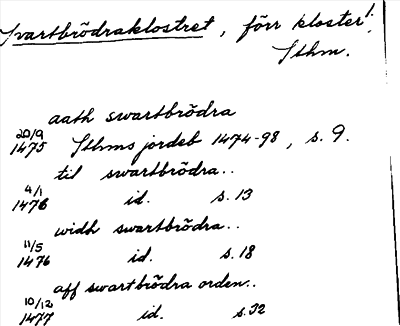 Svartbrödraklostret, förr kloster!,
Sthm.
aath swartbrödra
20/9
1475 Sthms jordeb 1474-98, s. 9.
til swartbrödra..
4/1
1476 id. s. 13
widh swartbrödra..
11/5
1476 id. s. 18
aff swartbrödra orden..
10/12
1477 id. s. 32